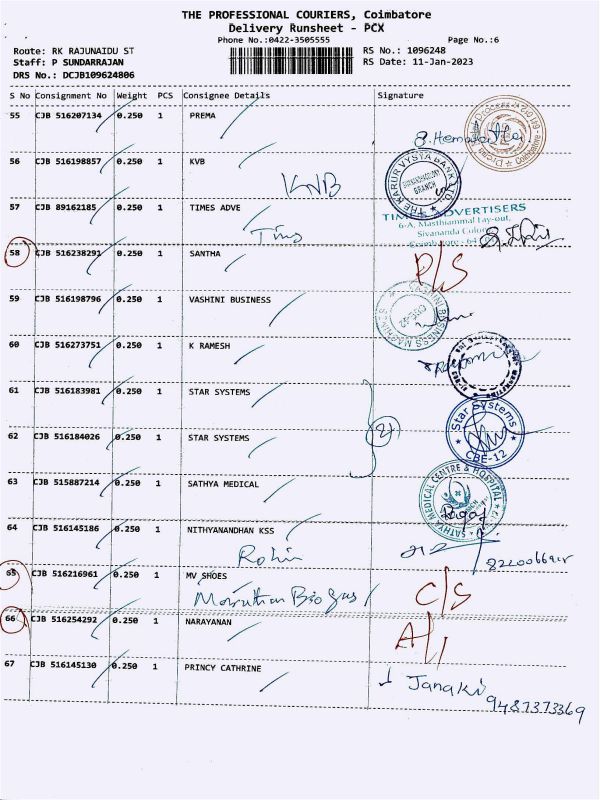 THE PROFESSIONAL COURIERS, Coimbatore
Delivery Runsheet - PCX
Phone No.:0422-3505555 Page No.:6
Route: RK RAJUNAIDU ST RS No.: 1096248
Staff: P SUNDARRAJAN RS Date: 11-Jan-2023
DRS No.: DCJB109624806
S No Consignment No Weight PCS Consignee Details Signature
55 CJB 516207134 0.250 1 PREMA
56 CJB 516198857 0.250 1 KVB
THE KARUR VYSYA BANK LTD.
BRANCH
KVB
57 CJB 89162185 0.250 1 TIMES ADVE
TIMES ADVERTISERS
6-A, Masthiammal Lay-out,
Sivananda Colony
Coimbatore - 64
Tims
58 CJB 516238291 0.250 1 SANTHA
P/S
59 CJB 516198796 0.250 1 VASHINI BUSINESS
60 CJB 516273751 0.250 1 K RAMESH
61 CJB 516183981 0.250 1 STAR SYSTEMS
62 CJB 516184026 0.250 1 STAR SYSTEMS
Star Systems
CBE-12
63 CJB 515887214 0.250 1 SATHYA MEDICAL
SATHYA MEDICAL CENTRE & HOSPITAL
64 CJB 516145186 0.250 1 NITHYANANDHAN KSS
65 CJB 516216961 0.250 1 MV SHOES
C/S
66 CJB 516254292 0.250 1 NARAYANAN
67 CJB 516145130 0.250 1 PRINCY CATHRINE
Janaki
9487373369